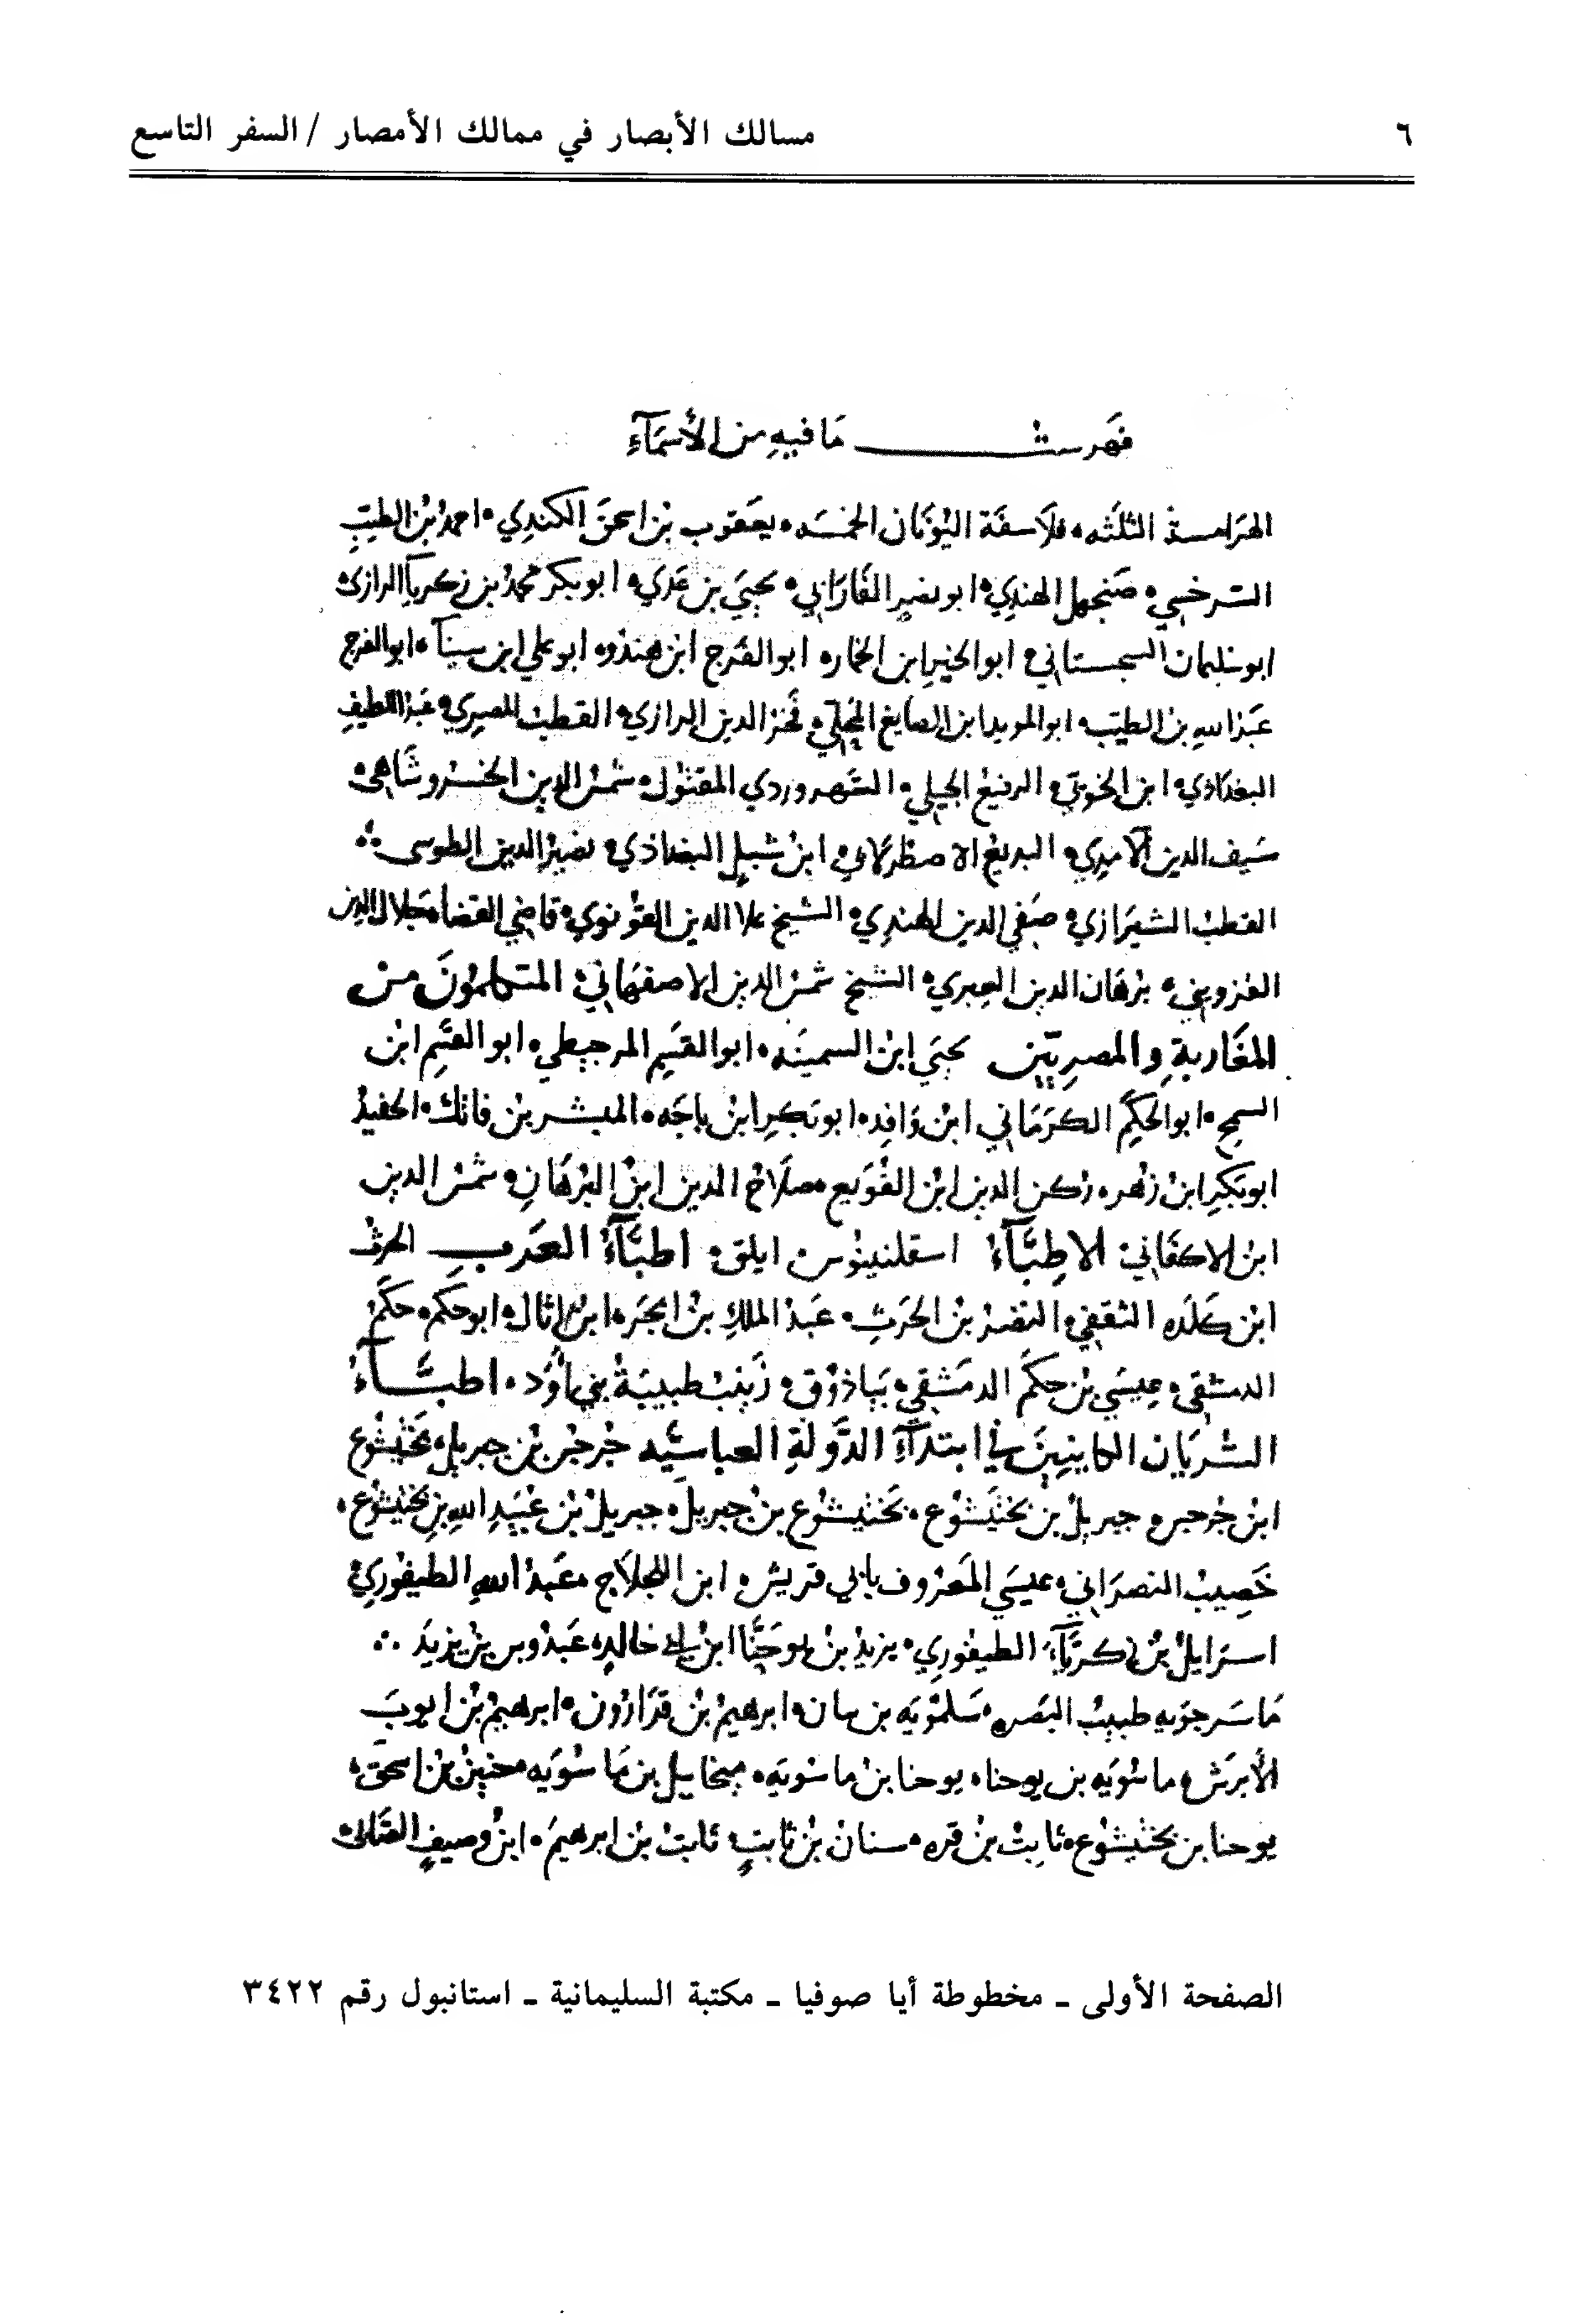 ٦
مسالك الأبصار في ممالك الأمصار / السفر التاسع
فهرست ما فيه من الأسمآء
الهرامسة الثلثه • فلاسفة اليونان الخمسه • يعقوب بن اسحق الكندي • احمد بن الطيب
السرخسي • صنجهل الهندي • ابو نصر الفارابي • يحيى بن عدي • ابو بكر محمد بن زكريآ الرازي •
ابو سليمان السجستاني • ابو الخير ابن الخمار • ابو الفرج ابن هندو • ابو علي ابن سينآ • ابو الفرج
عبد الله بن الطيب • ابو المويد ابن الصايغ • فخر الدين الرازي • القطب المصري • عبد اللطيف
البغدادي • ابن الخوبي • الرفيع الجيلي • السهروردي المقتول • شمس الدين الخسروشاهي •
سيف الدين الآمدي • البديع الاصطرلابي • ابن شبل البغداذي • نصير الدين الطوسي ∴
القطب الشيرازي • صفي الدين الهندي • الشيخ علا الدين القونوي • قاضي القضاه جلال الدين
القزويني • برهان الدين العبري • الشيخ شمس الدين الاصفهاني • المتكلمون من
المغاربة والمصريين يحيى ابن السمينه • ابو القسم المرجيطي • ابو القسم ابن
السمح • ابو الحكم الكرماني ابن وافد • ابو بكر ابن باجه • المبشر بن فاتك • الحفيد
ابو بكر ابن زهر • ركن الدين ابن القوبع • صلاح الدين ابن البرهان • شمس الدين
ابن الاكفاني • الاطبآء اسقلنبيوس ايلق • اطبآء العرب الحرث
ابن كلده الثقفي • النضر بن الحرث • عبد الملك بن ابجر • ابن اثال • ابو حكم • حكم
الدمشقي • عيسى بن حكم الدمشقي • تياذوق • زينب طبيبة بني اود • اطبــآء
السريان الكاينين في ابتدآء الدولة العباسيه جرجس بن جبريل • بختيشوع
ابن جرجس • جبريل بن بختيشوع • بختيشوع بن جبريل • جبريل بن عبيد الله بن بختيشوع •
خصيب النصراني • عيسى المعروف بابي قريش • ابن اللجلاج • عبد الله الطيفوري •
اسرايل بن زكريآء الطيفوري • يزيد بن يوحنا ابن ابي خالد • عبدوس بن يزيد ∴
ماسرجويه طبيب البصره • سلمويه بن بنان • ابرهيم بن قزارون • ابرهيم بن ايوب
الأبرش • ماسويه بن يوحنا • يوحنا بن ماسويه • ميخاييل بن ماسويه • حنين بن اسحق •
يوحنا بن بختيشوع • ثابت بن قره • سنان بن ثابت • ثابت بن ابرهيم • ابن وصيف الصابى •
الصفحة الأولى - مخطوطة أيا صوفيا - مكتبة السليمانية - استانبول رقم ٣٤٢٢